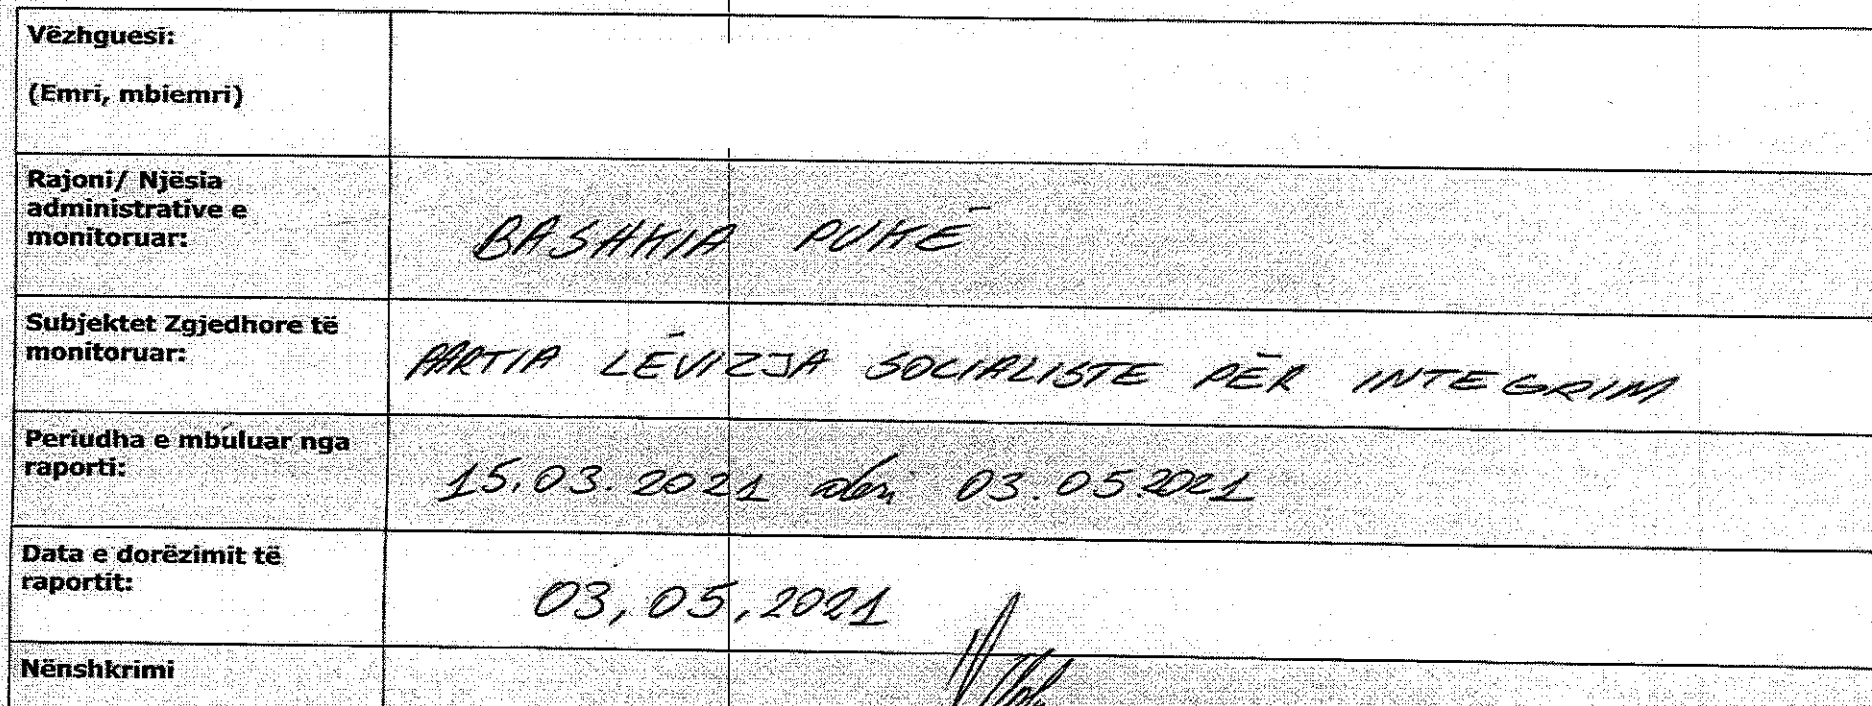 Vëzhguesi:
(Emri, mbiemri)
Rajoni/ Njësia
administrative e
monitoruar:
BASHKIA PUKË
Subjektet Zgjedhore të
monitoruar:
PARTIA LËVIZJA SOCIALISTE PËR INTEGRIM
Periudha e mbuluar nga
raporti:
15.03.2021 deri 03.05.2021
Data e dorëzimit të
raportit:
03,05,2021
Nënshkrimi